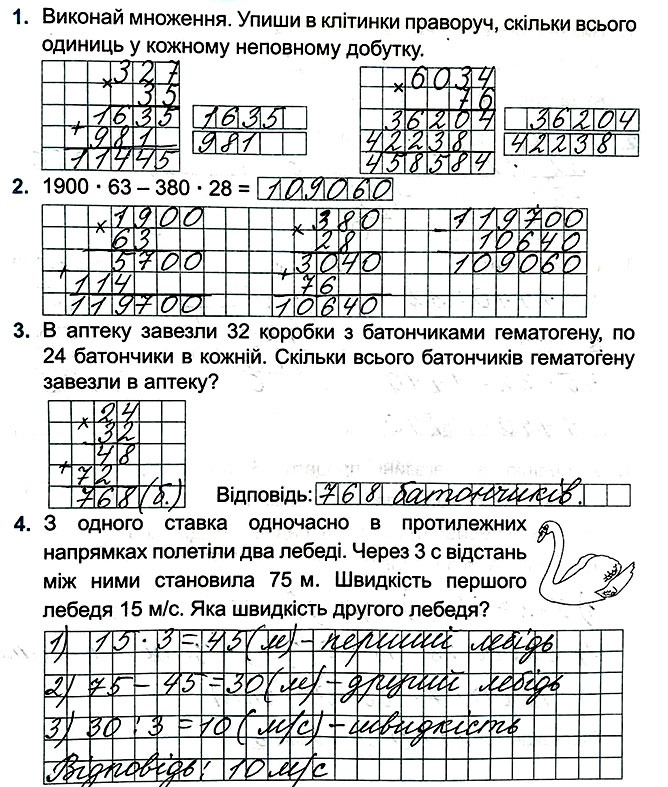 1. Виконай множення. Упиши в клітинки праворуч, скільки всього
одиниць у кожному неповному добутку.
× 327
35
1635
+ 981
11445
1635
981
× 6034
76
36204
42238
458584
36204
42238
2. 1900 · 63 – 380 · 28 = 109060
× 1900
63
5700
+ 114
119700
× 380
28
3040
+ 76
10640
– 119700
10640
109060
3. В аптеку завезли 32 коробки з батончиками гематогену, по
24 батончики в кожній. Скільки всього батончиків гематогену
завезли в аптеку?
× 24
32
48
+ 72
768 (б.)
Відповідь: 768 батончиків.
4. З одного ставка одночасно в протилежних
напрямках полетіли два лебеді. Через 3 с відстань
між ними становила 75 м. Швидкість першого
лебедя 15 м/с. Яка швидкість другого лебедя?
1) 15 · 3 = 45 (м) – перший лебідь
2) 75 – 45 = 30 (м) – другий лебідь
3) 30 : 3 = 10 (м/с) – швидкість
Відповідь: 10 м/с